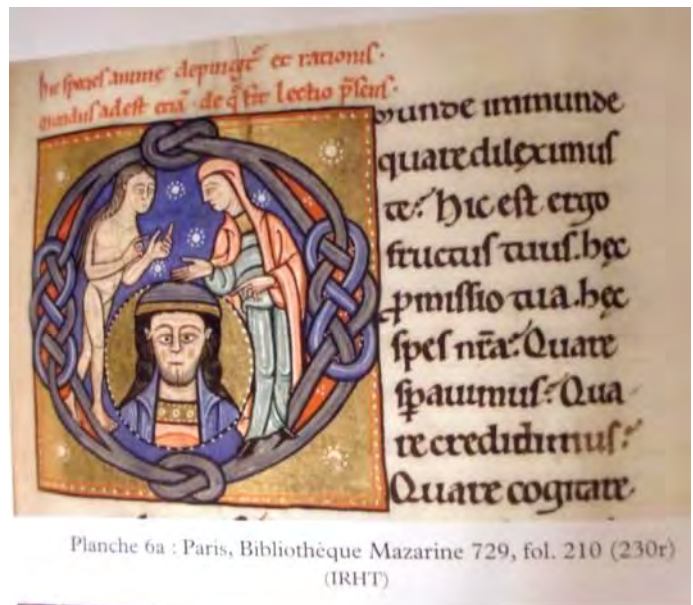 hic species anime depingit᷑ et rationis·
mundus adest etiā· de q̊ fit lectio p̄sens·
O munde immunde
quare dileximus
te? Hic est ergo
fructus tuus. hęc
ꝓmissio tua. hęc
spes nr̄a? Quare
sꝑauimus? Qua
re credidimus?
Quare cogitare
Planche 6a : Paris, Bibliothèque Mazarine 729, fol. 210 (230r)
(IRHT)